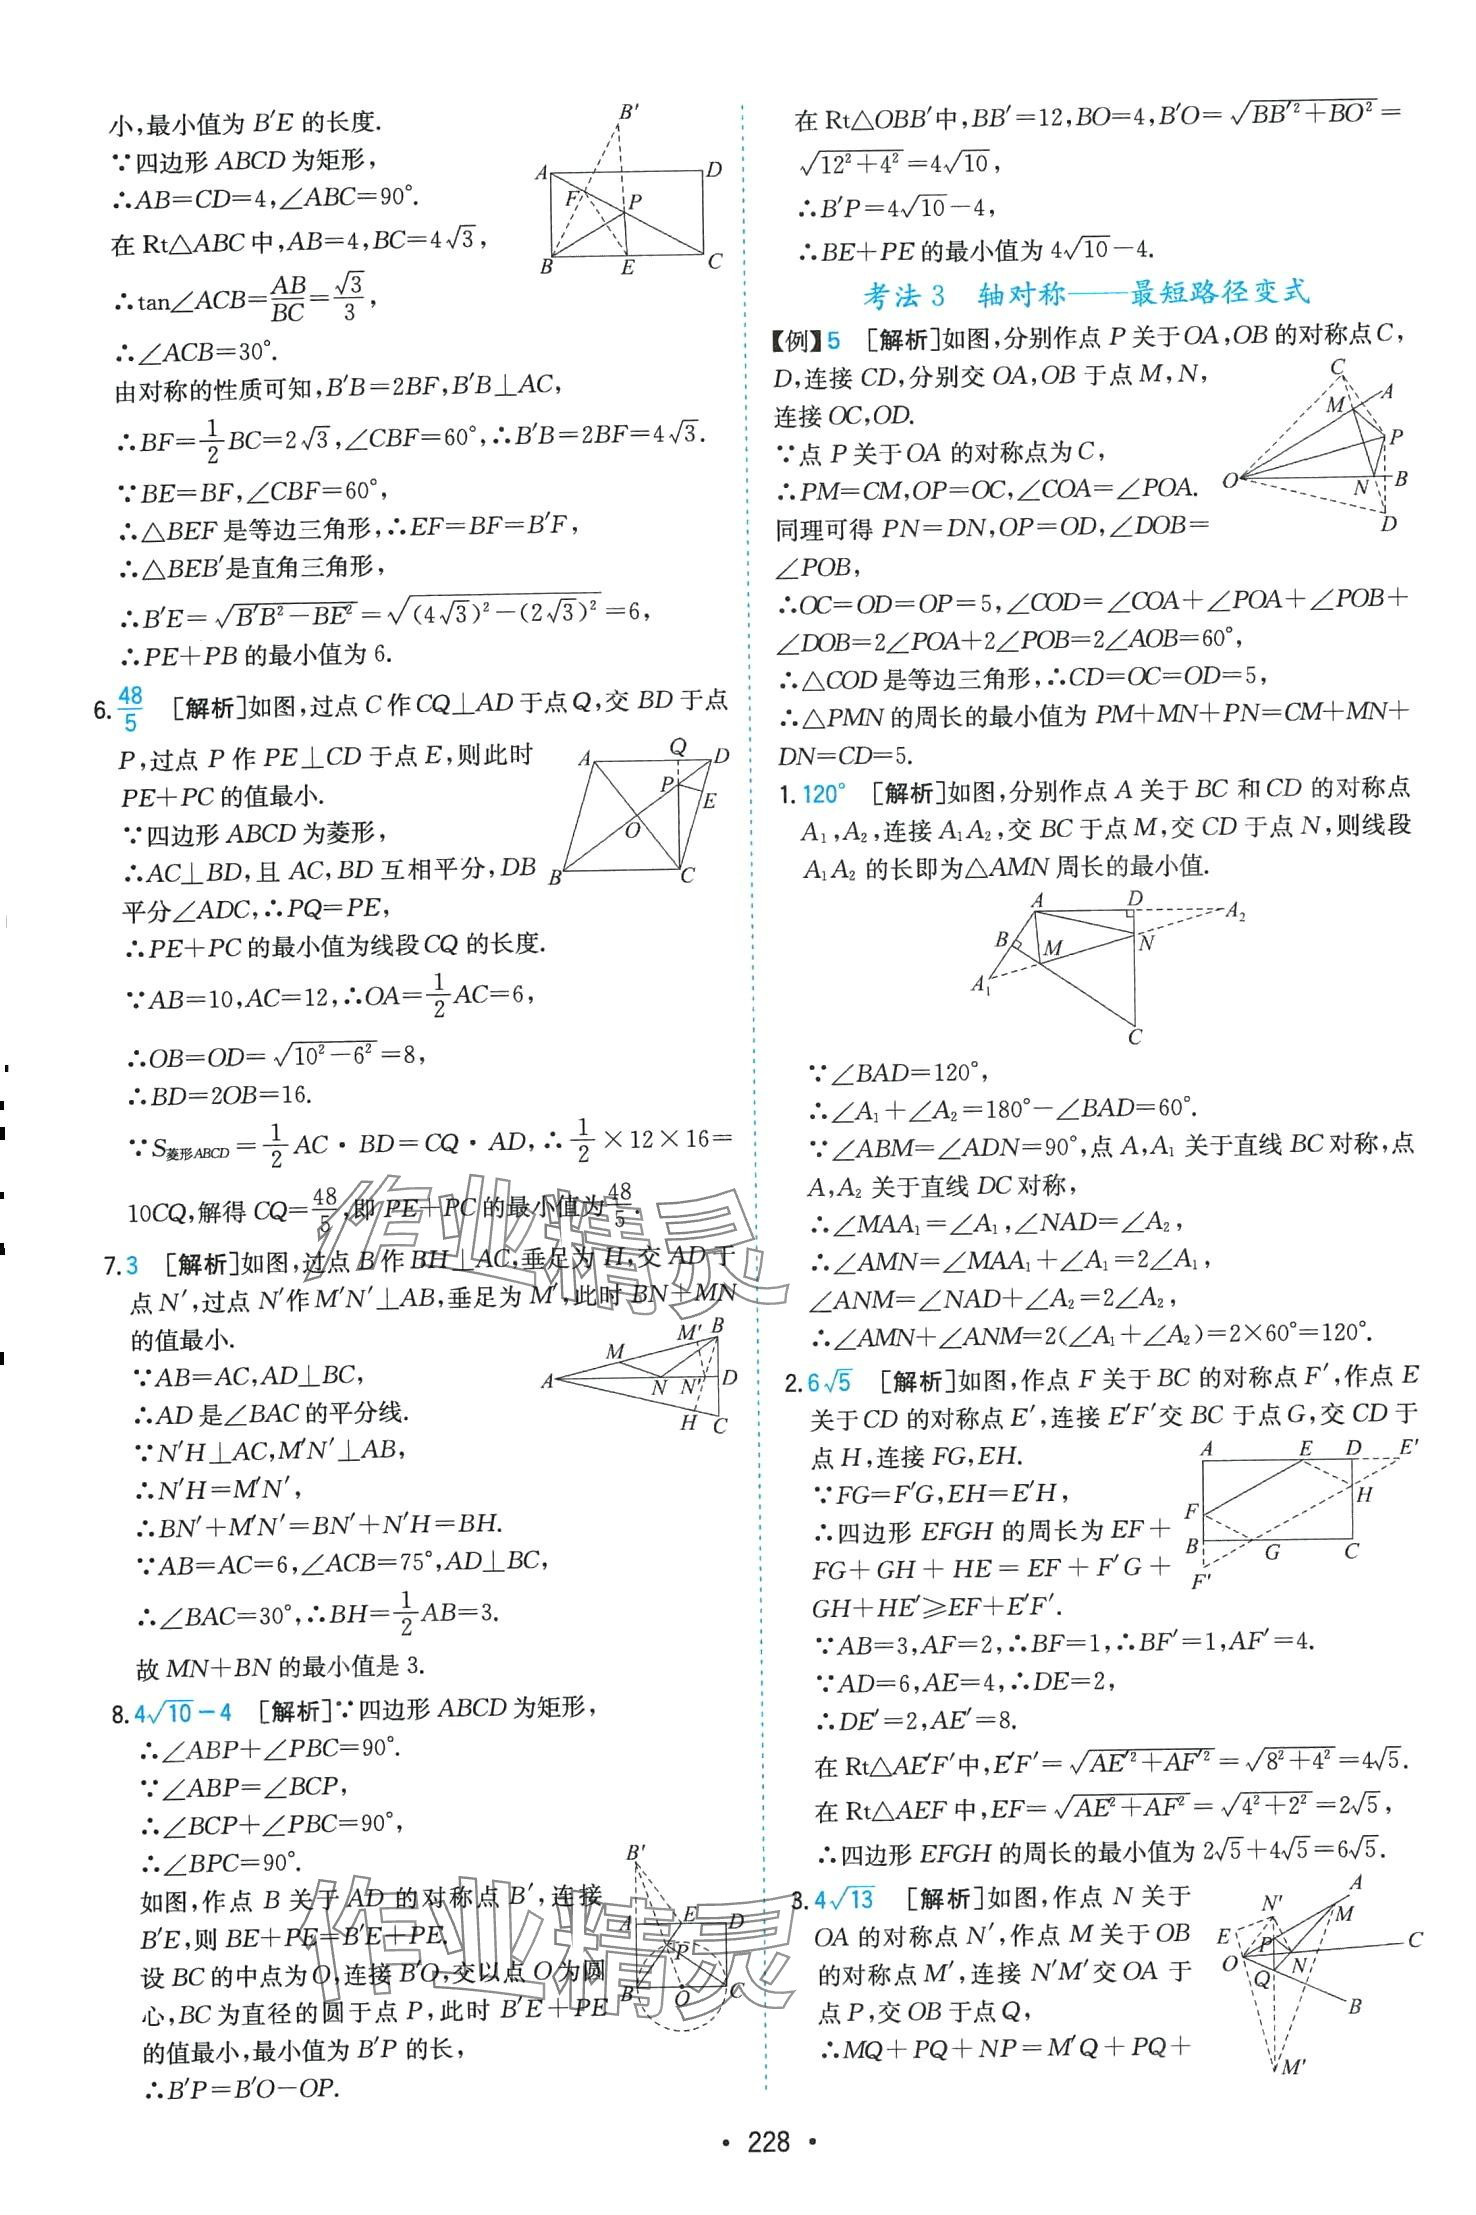 小,最小值为 B′E 的长度.
∵四边形 ABCD 为矩形,
∴AB=CD=4,∠ABC=90°.
在 Rt△ABC 中,AB=4,BC=4√3,
∴tan∠ACB=AB/BC=√3/3,
∴∠ACB=30°.
由对称的性质可知,B′B=2BF,B′B⊥AC,
∴BF=1/2BC=2√3,∠CBF=60°,∴B′B=2BF=4√3.
∵BE=BF,∠CBF=60°,
∴△BEF 是等边三角形,∴EF=BF=B′F,
∴△BEB′是直角三角形,
∴B′E=√(B′B²−BE²)=√((4√3)²−(2√3)²)=6,
∴PE+PB 的最小值为 6.
B′ A D F P B E C
6. 48/5 [解析]如图,过点 C 作 CQ⊥AD 于点 Q,交 BD 于点
P,过点 P 作 PE⊥CD 于点 E,则此时
PE+PC 的值最小.
∵四边形 ABCD 为菱形,
∴AC⊥BD,且 AC,BD 互相平分,DB
平分∠ADC,∴PQ=PE,
∴PE+PC 的最小值为线段 CQ 的长度.
∵AB=10,AC=12,∴OA=1/2AC=6,
∴OB=OD=√(10²−6²)=8,
∴BD=2OB=16.
∵S菱形ABCD=1/2AC·BD=CQ·AD,∴1/2×12×16=
10CQ,解得 CQ=48/5,即 PE+PC 的最小值为48/5.
A Q D P E O B C
7. 3 [解析]如图,过点 B 作 BH⊥AC,垂足为 H,交 AD 于
点 N′,过点 N′作 M′N′⊥AB,垂足为 M′,此时 BN+MN
的值最小.
∵AB=AC,AD⊥BC,
∴AD 是∠BAC 的平分线.
∵N′H⊥AC,M′N′⊥AB,
∴N′H=M′N′,
∴BN′+M′N′=BN′+N′H=BH.
∵AB=AC=6,∠ACB=75°,AD⊥BC,
∴∠BAC=30°,∴BH=1/2AB=3.
故 MN+BN 的最小值是 3.
M′ B M A N N′ D H C
8. 4√10−4 [解析]∵四边形 ABCD 为矩形,
∴∠ABP+∠PBC=90°.
∵∠ABP=∠BCP,
∴∠BCP+∠PBC=90°,
∴∠BPC=90°.
如图,作点 B 关于 AD 的对称点 B′,连接
B′E,则 BE+PE=B′E+PE.
设 BC 的中点为 O,连接 B′O,交以点 O 为圆
心,BC 为直径的圆于点 P,此时 B′E+PE
的值最小,最小值为 B′P 的长,
∴B′P=B′O−OP.
B′ A E D P B O C
在 Rt△OBB′中,BB′=12,BO=4,B′O=√(BB′²+BO²)=
√(12²+4²)=4√10,
∴B′P=4√10−4,
∴BE+PE 的最小值为 4√10−4.
考法 3 轴对称——最短路径变式
【例】5 [解析]如图,分别作点 P 关于 OA,OB 的对称点 C,
D,连接 CD,分别交 OA,OB 于点 M,N,
连接 OC,OD.
∵点 P 关于 OA 的对称点为 C,
∴PM=CM,OP=OC,∠COA=∠POA.
同理可得 PN=DN,OP=OD,∠DOB=
∠POB,
∴OC=OD=OP=5,∠COD=∠COA+∠POA+∠POB+
∠DOB=2∠POA+2∠POB=2∠AOB=60°,
∴△COD 是等边三角形,∴CD=OC=OD=5,
∴△PMN 的周长的最小值为 PM+MN+PN=CM+MN+
DN=CD=5.
C A M P O N B D
1. 120° [解析]如图,分别作点 A 关于 BC 和 CD 的对称点
A₁,A₂,连接 A₁A₂,交 BC 于点 M,交 CD 于点 N,则线段
A₁A₂ 的长即为△AMN 周长的最小值.
A D A₂ B M N A₁ C
∵∠BAD=120°,
∴∠A₁+∠A₂=180°−∠BAD=60°.
∵∠ABM=∠ADN=90°,点 A,A₁ 关于直线 BC 对称,点
A,A₂ 关于直线 DC 对称,
∴∠MAA₁=∠A₁,∠NAD=∠A₂,
∴∠AMN=∠MAA₁+∠A₁=2∠A₁,
∠ANM=∠NAD+∠A₂=2∠A₂,
∴∠AMN+∠ANM=2(∠A₁+∠A₂)=2×60°=120°.
2. 6√5 [解析]如图,作点 F 关于 BC 的对称点 F′,作点 E
关于 CD 的对称点 E′,连接 E′F′交 BC 于点 G,交 CD 于
点 H,连接 FG,EH.
∵FG=F′G,EH=E′H,
∴四边形 EFGH 的周长为 EF+
FG+GH+HE=EF+F′G+
GH+HE′≥EF+E′F′.
∵AB=3,AF=2,∴BF=1,∴BF′=1,AF′=4.
∵AD=6,AE=4,∴DE=2,
∴DE′=2,AE′=8.
在 Rt△AE′F′中,E′F′=√(AE′²+AF′²)=√(8²+4²)=4√5.
在 Rt△AEF 中,EF=√(AE²+AF²)=√(4²+2²)=2√5,
∴四边形 EFGH 的周长的最小值为 2√5+4√5=6√5.
A E D E′ H F B G C F′
3. 4√13 [解析]如图,作点 N 关于
OA 的对称点 N′,作点 M 关于 OB
的对称点 M′,连接 N′M′交 OA 于
点 P,交 OB 于点 Q,
∴MQ+PQ+NP=M′Q+PQ+
A N′ M E P C O Q N B M′
作业精灵
作业精灵
· 228 ·